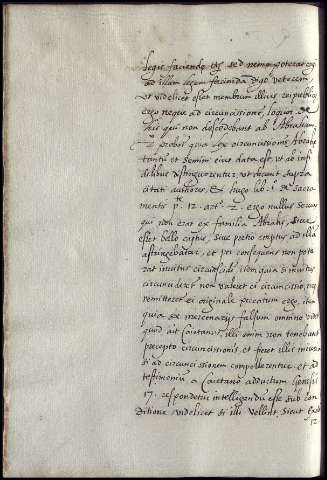 legis faciendę etc sed nemo poterat cogi
ad illam legem faciendã ergo
ut videlicet esset membrum illius reipublicę
ergo neque ad circuncisionem, loquor de
his qui non descendebant ab Abraham
probat quia lex circuncisionis Abrahę
tantũ et semini eius data est, ut ab infi
delibus distinguerentur, ut dicunt supra
citati authores, et Hugo lib. 1 de sacra
mentis p. 12 ergo nullus servus
qui non erat ex familia Abrahę, sive
esset bello captus, sive pretio emptus ad illã
astringebatur, et per consequens non pote
rat invitus circũcidi, item quia si invitus
circuncideret non valeret ei circuncisio, nec
remitteret ei originale peccatum ergo, item
quia ex mercenarijs falsum omnino vide
quod ait Caietanus, illi enim non tenebant
precepto circuncisionis et fieret illis iniuria
si ad circuncisionem compellerentur et ad
testimonium a Caietano adductum Genesis
17. respondetur intelligendũ esse sub con
ditione videlicet si illi vellent, sicut Exod
12